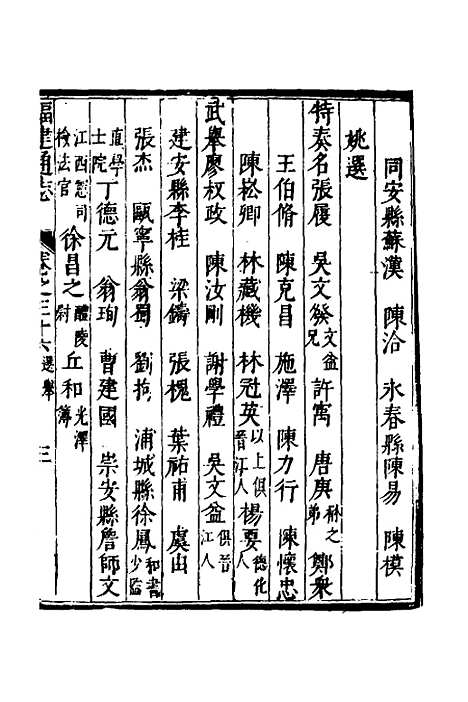 同安縣蘇漢　陳洽　永春縣陳易　陳模
姚選
特奏名張履　吳文發文益兄　許寓　唐庚弟　鄭衆
王伯脩　陳克昌　施澤　陳力行　陳懷忠
陳崧卿　林藏機　林冠英以上俱晉江人　楊要德化人
武舉廖权政　陳汝剛　謝學禮　吳文益俱晉江人
建安縣李桂　梁鑄　張槐　葉祐甫　虞由
張杰　甌寧縣翁蜀　劉拘　浦城縣徐鳳秘書少監
直學士院　丁德元　翁珣　曹建國　崇安縣詹師文
江西憲司檢法官　徐昌之醴陵尉　丘和光澤簿
福建通志　卷之三十六　選舉　三